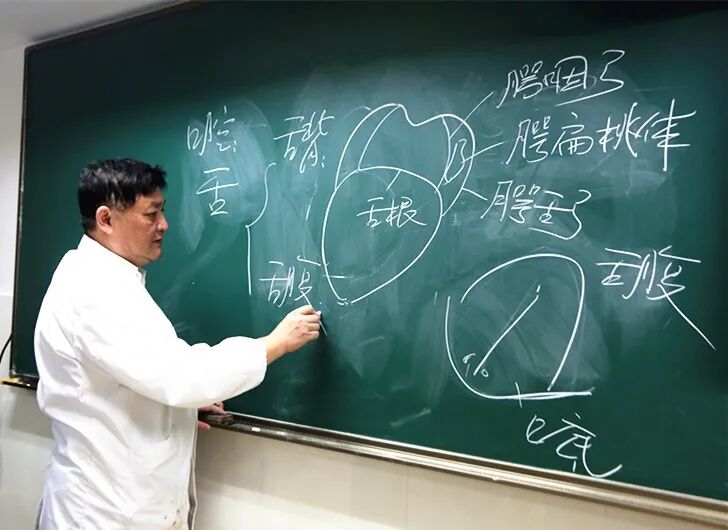 口腔:
舌
舌背:
舌腹:
舌根
腭咽弓
腭扁桃体
腭舌弓
舌腹
口底